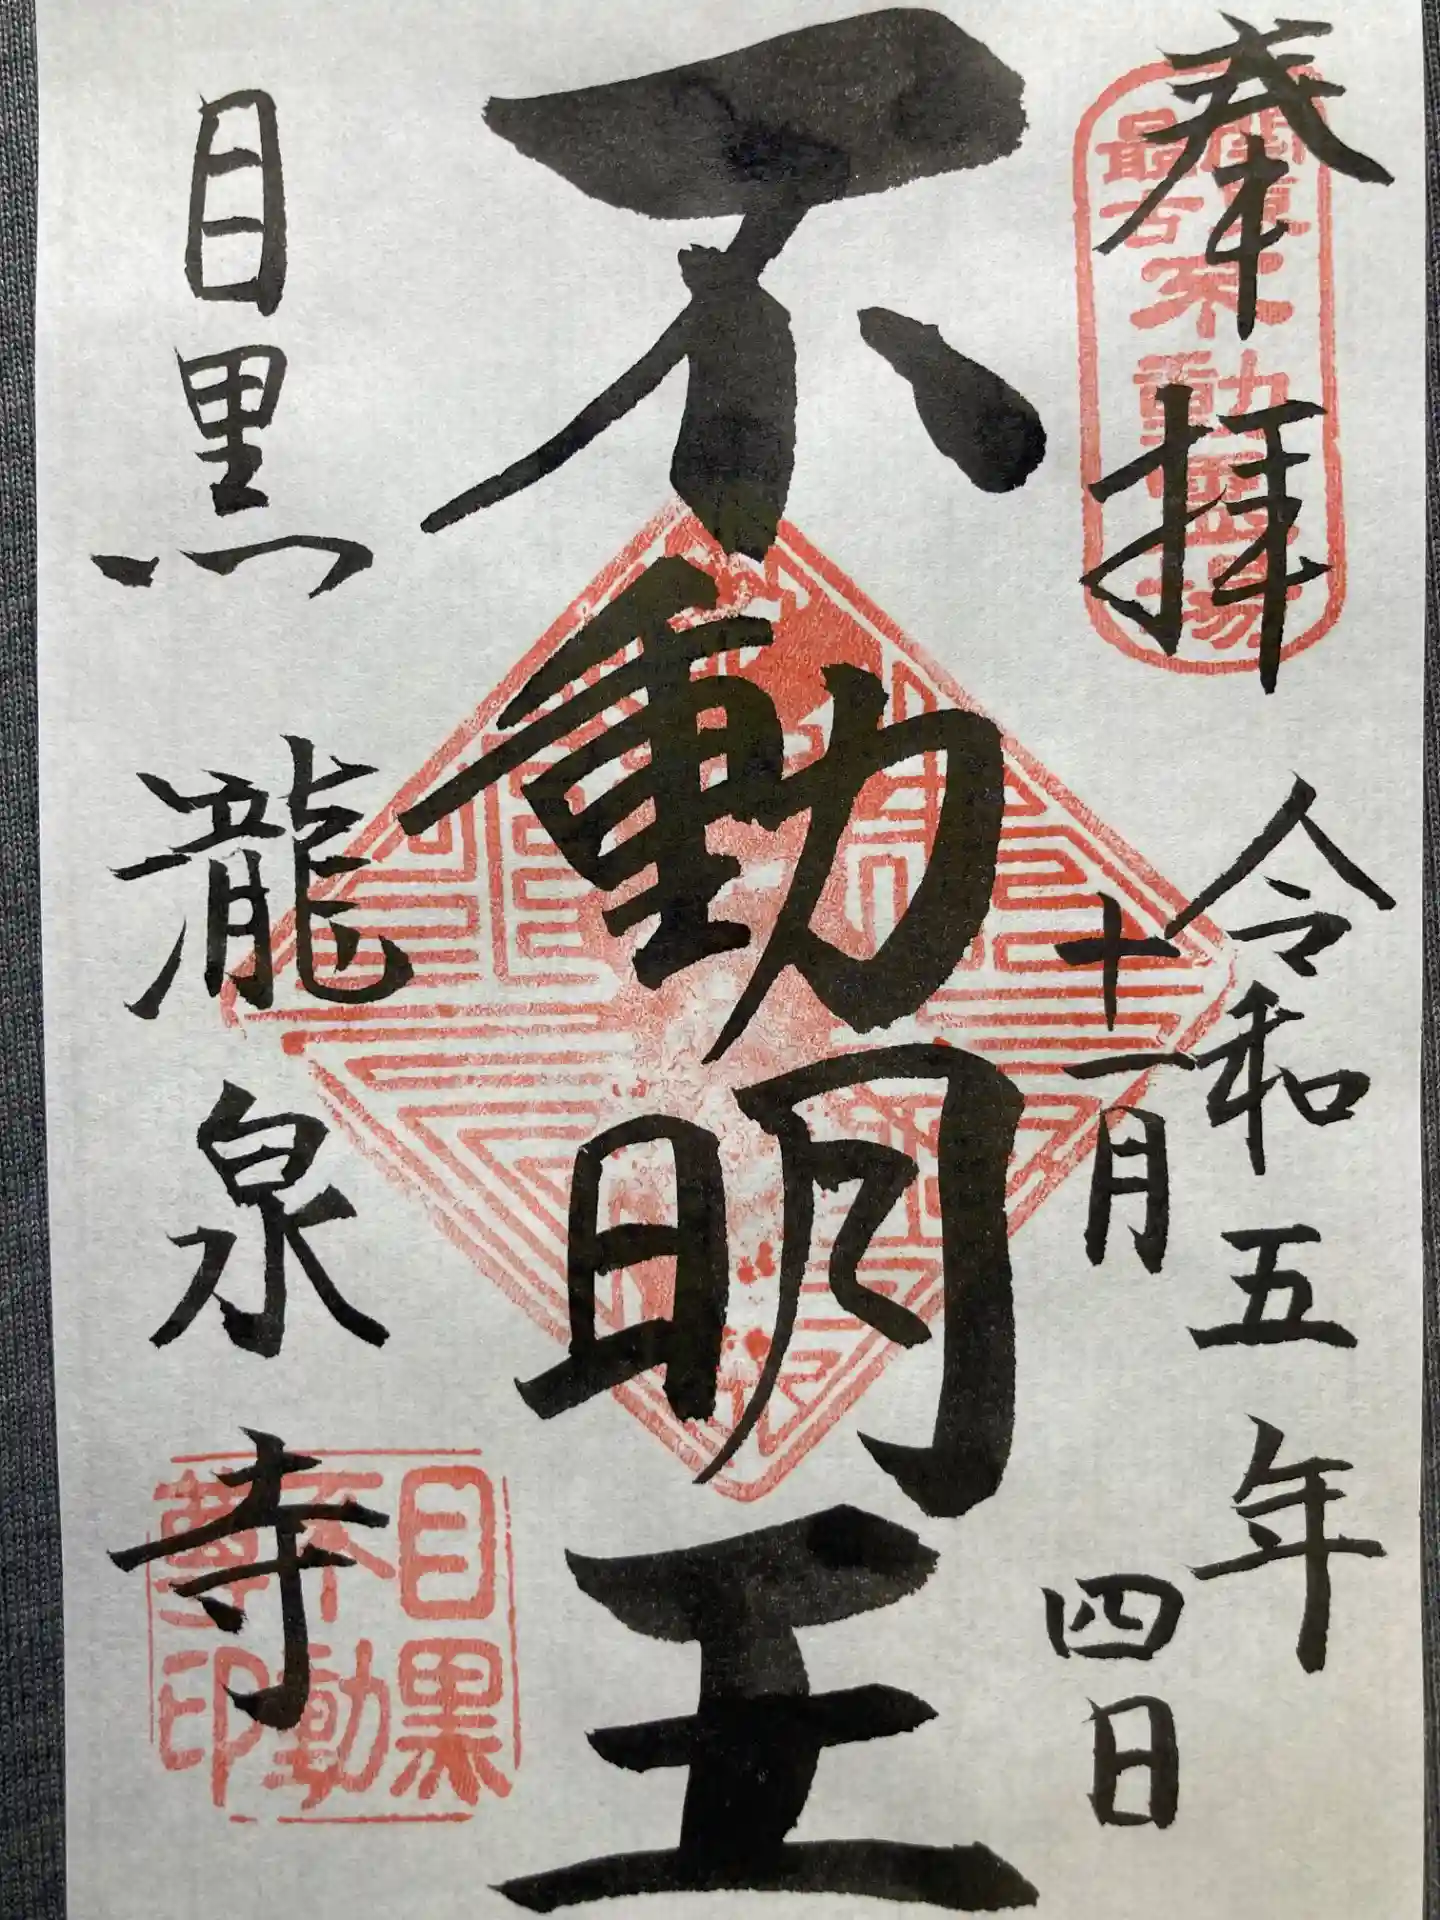 奉拝
関東最古不動霊場
令和五年
十一月四日
不動明王
目黒龍泉寺
目黒不動尊印